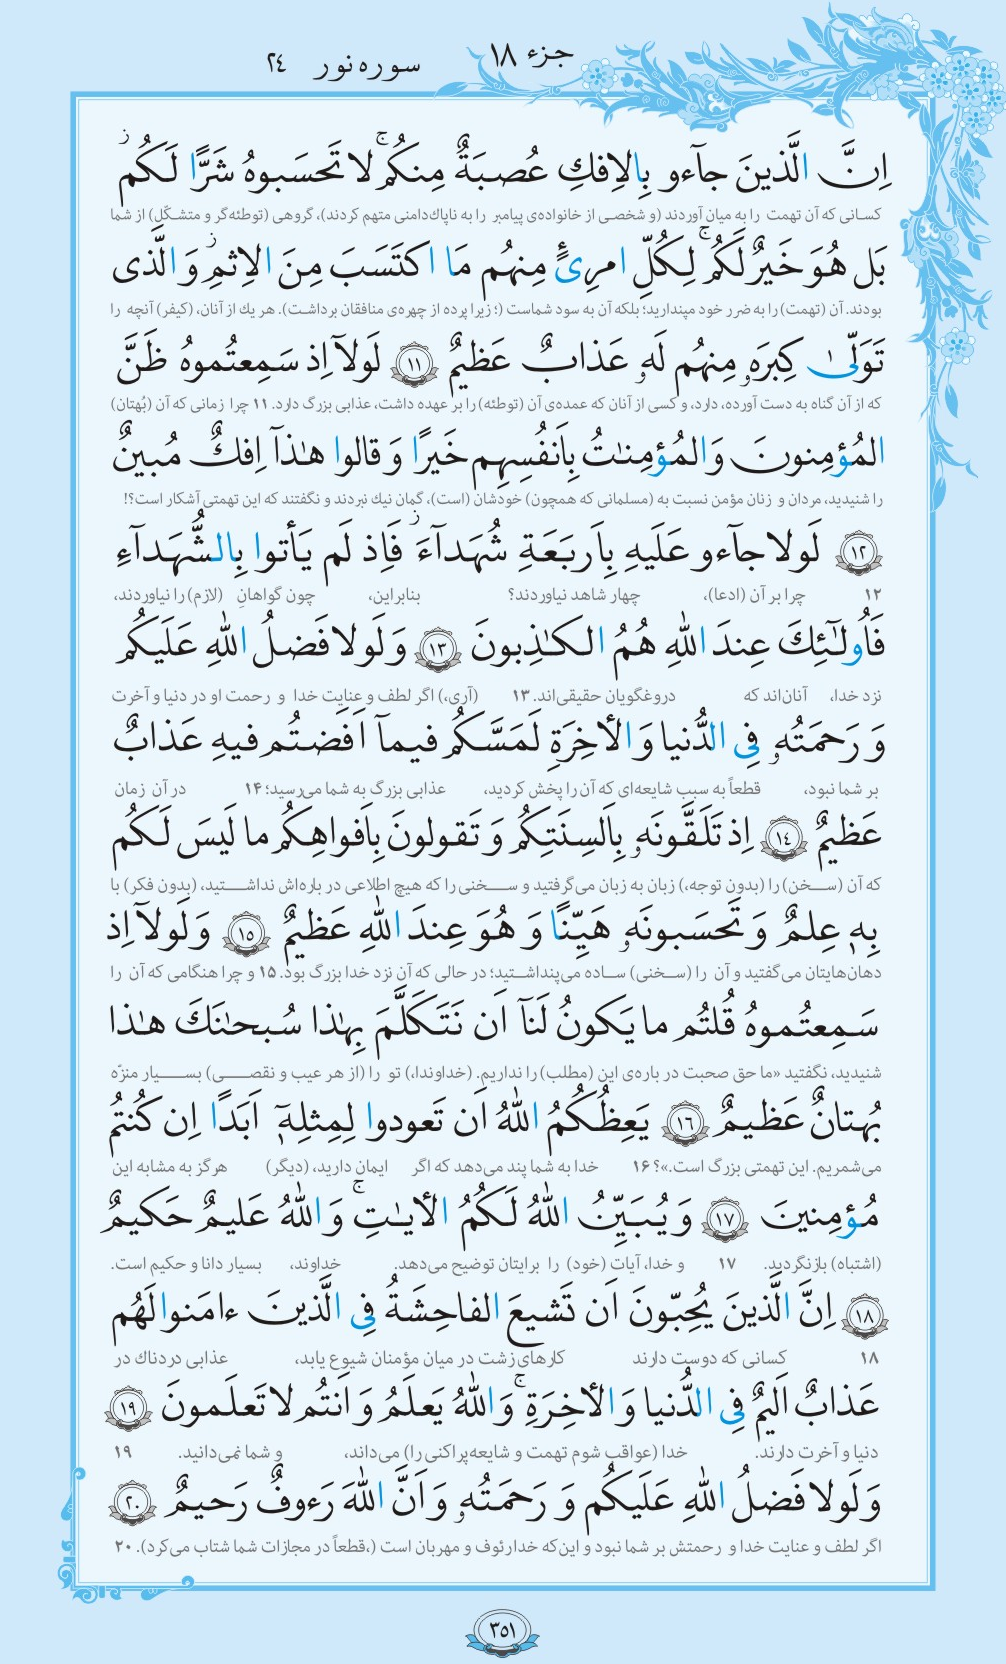 جزء ۱۸
سوره نور ۲٤
اِنَّ الَّذينَ جآءو بِالاِفكِ عُصبَةٌ مِنكُمۚ لا تَحسَبوهُ شَرًّا لَكُمۖ
کسانی که آن تهمت را به میان آوردند (و شخصی از خانواده‌ی پیامبر را به ناپاك‌دامنی متهم کردند)، گروهی (توطئه‌گر و متشکّل) از شما
بَل هُوَ خَيرٌ لَكُمۚ لِكُلِّ امرِئٍ مِنهُم مَا اكتَسَبَ مِنَ الاِثمِۚ وَ الَّذى
بودند. آن (تهمت) را به ضرر خود مپندارید؛ بلکه آن به سود شماست (؛ زیرا پرده از چهره‌ی منافقان برداشت). هر یك از آنان، (کیفر) آنچه را
تَوَلّىٰ كِبرَهٗ مِنهُم لَهٗ عَذابٌ عَظيمٌ ﴿۱۱﴾ لَولآ اِذ سَمِعتُموهُ ظَنَّ
که از آن گناه به دست آورده، دارد، و کسی از آنان که عمده‌ی آن (توطئه) را بر عهده داشت، عذابی بزرگ دارد. ۱۱ چرا زمانی که آن (بُهتان)
المُؤمِنونَ وَ المُؤمِنٰتُ بِاَنفُسِهِم خَيرًا وَ قالوا هٰذآ اِفكٌ مُبينٌ
را شنیدید، مردان و زنان مؤمن نسبت به (مسلمانی که همچون) خودشان (است)، گمان نیك نبردند و نگفتند که این تهمتی آشکار است؟!
﴿۱۲﴾ لَولا جآءو عَلَيهِ بِاَربَعَةِ شُهَدآءَۚ فَاِذ لَم يَأتوا بِالشُّهَدآءِ
۱۲ چرا بر آن (ادعا)، چهار شاهد نیاوردند؟ بنابراین، چون گواهانِ (لازم) را نیاوردند،
فَاُولٰٓئِكَ عِندَ اللهِ هُمُ الكٰذِبونَ ﴿۱۳﴾ وَ لَولا فَضلُ اللهِ عَلَيكُم
نزد خدا، آنان‌اند که دروغگویان حقیقی‌اند. ۱۳ (آری،) اگر لطف و عنایت خدا و رحمت او در دنیا و آخرت
وَ رَحمَتُهٗ فِى الدُّنيا وَ الأخِرَةِ لَمَسَّكُم فيمآ اَفَضتُم فيهِ عَذابٌ
بر شما نبود، قطعاً به سبب شایعه‌ای که آن را پخش کردید، عذابی بزرگ به شما می‌رسید؛ ۱۴ در آن زمان
عَظيمٌ ﴿۱٤﴾ اِذ تَلَقَّونَهٗ بِاَلسِنَتِكُم وَ تَقولونَ بِاَفواهِكُم ما لَيسَ لَكُم
که آن (سخن) را (بدون توجه،) زبان به زبان می‌گرفتید و سخنی را که هیچ اطلاعی در باره‌اش نداشتید، (بدون فکر) با
بِهٖ عِلمٌ وَ تَحسَبونَهٗ هَيِّنًا وَ هُوَ عِندَ اللهِ عَظيمٌ ﴿۱٥﴾ وَ لَولآ اِذ
دهان‌هایتان می‌گفتید و آن را (سخنی) ساده می‌پنداشتید؛ در حالی که آن نزد خدا بزرگ بود. ۱۵ و چرا هنگامی که آن را
سَمِعتُموهُ قُلتُم ما يَكونُ لَنآ اَن نَتَكَلَّمَ بِهٰذا سُبحٰنَكَ هٰذا
شنیدید، نگفتید «ما حق صحبت در باره‌ی این (مطلب) را نداریم. (خداوندا،) تو را (از هر عیب و نقصی) بسیار منزّه
بُهتانٌ عَظيمٌ ﴿۱٦﴾ يَعِظُكُمُ اللهُ اَن تَعودوا لِمِثلِهٖٓ اَبَدًا اِن كُنتُم
می‌شمریم. این تهمتی بزرگ است.»؟ ۱۶ خدا به شما پند می‌دهد که اگر ایمان دارید، (دیگر) هرگز به مشابه این
مُؤمِنينَ ﴿۱۷﴾ وَ يُبَيِّنُ اللهُ لَكُمُ الأيٰتِۚ وَ اللهُ عَليمٌ حَكيمٌ
(اشتباه) بازنگردید. ۱۷ و خدا، آیات (خود) را برایتان توضیح می‌دهد. خداوند، بسیار دانا و حکیم است.
﴿۱۸﴾ اِنَّ الَّذينَ يُحِبّونَ اَن تَشيعَ الفاحِشَةُ فِى الَّذينَ ءامَنوا لَهُم
۱۸ کسانی که دوست دارند کارهای زشت در میان مؤمنان شیوع یابد، عذابی دردناك در
عَذابٌ اَليمٌ فِى الدُّنيا وَ الأخِرَةِۚ وَ اللهُ يَعلَمُ وَ اَنتُم لا تَعلَمونَ ﴿۱۹﴾
دنیا و آخرت دارند. خدا (عواقب شوم تهمت و شایعه‌پراکنی را) می‌داند، و شما نمی‌دانید. ۱۹
وَ لَولا فَضلُ اللهِ عَلَيكُم وَ رَحمَتُهٗ وَ اَنَّ اللهَ رَءوفٌ رَحيمٌ ﴿۲۰﴾
اگر لطف و عنایت خدا و رحمتش بر شما نبود و این‌که خدا رئوف و مهربان است (،قطعاً در مجازات شما شتاب می‌کرد). ۲۰
۳٥۱